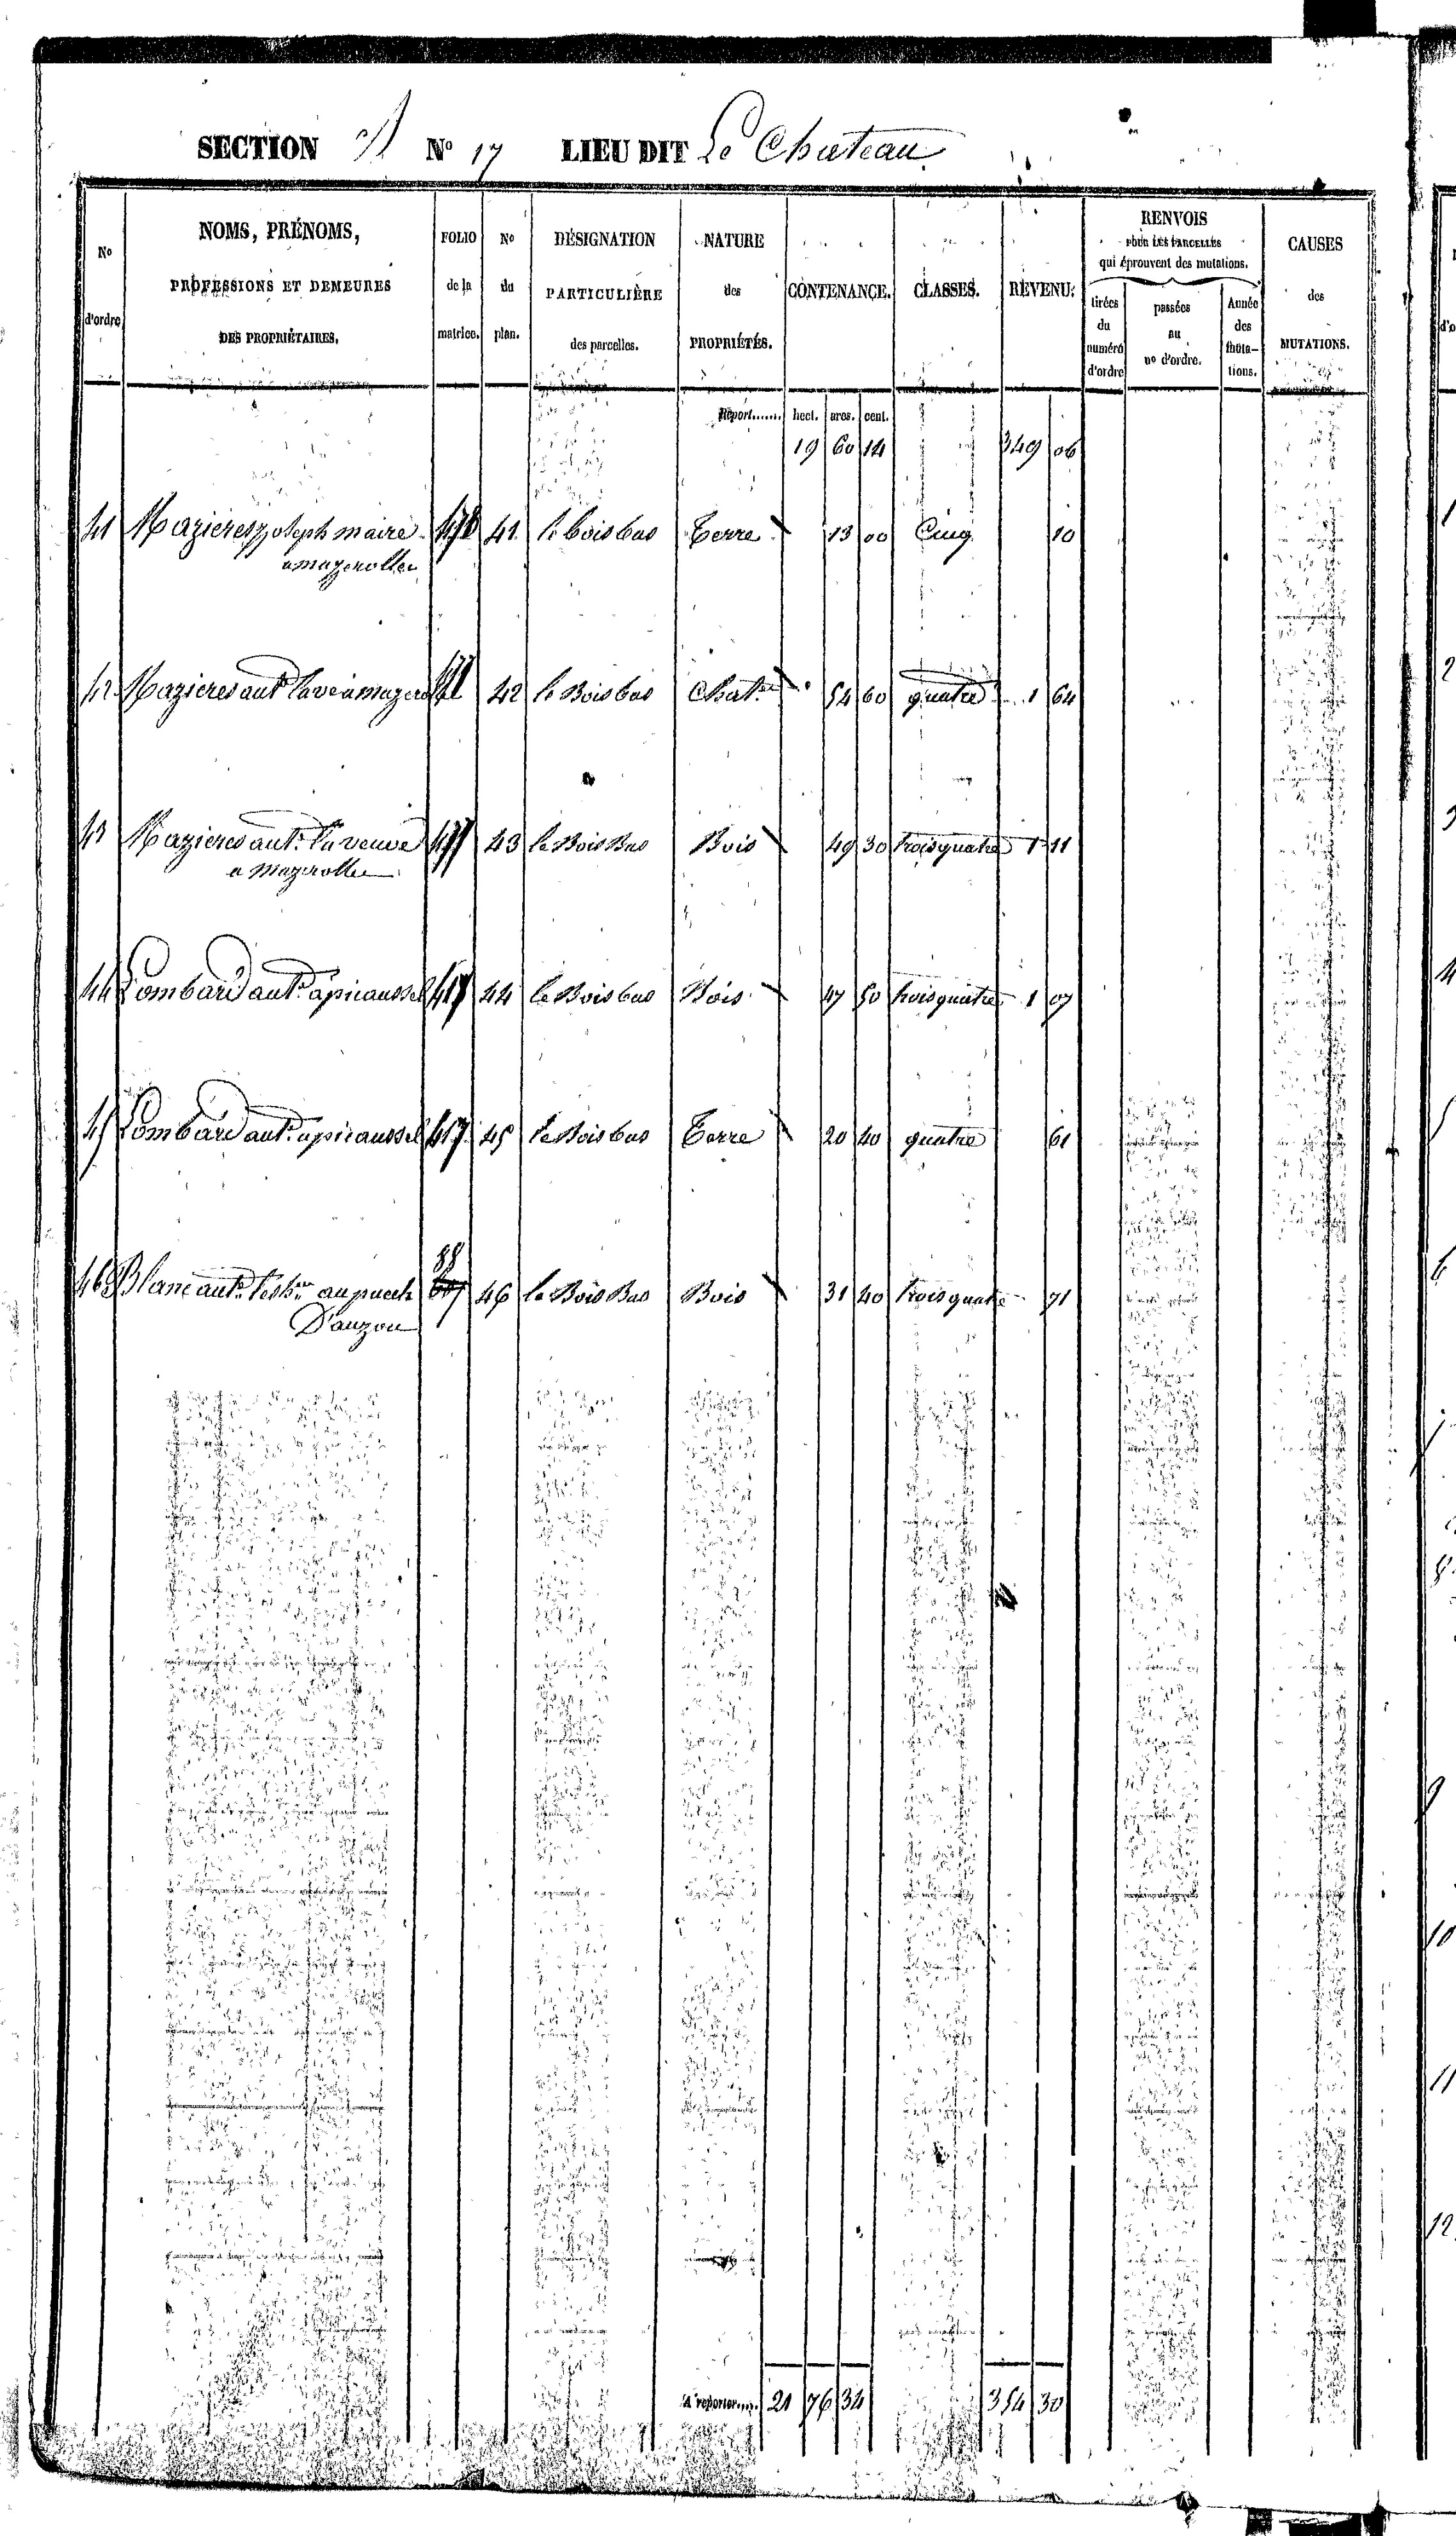 SECTION A No 17 LIEU DIT Le Chateau
No d'ordre
NOMS, PRÉNOMS, PROFESSIONS ET DEMEURES DES PROPRIÉTAIRES.
FOLIO de la matrice.
No du plan.
DÉSIGNATION PARTICULIÈRE des parcelles.
NATURE des PROPRIÉTÉS.
CONTENANCE.
CLASSES.
REVENU.
RENVOIS POUR LES PARCELLES qui éprouvent des mutations.
tirées du numéro d'ordre
passées au no d'ordre.
Année des muta-tions.
CAUSES des MUTATIONS.
Report....... hect. ares. cent.
19 60 14 349 06
41 Mazieres Joseph maire 478 41 le bois bas Terre 13 00 Cinq 10
a mazerolles
42 Mazieres ant. la ve a mazerolles 42 le Bois bas Chat. 54 60 quatre 1 64
43 Mazieres ant. la veuve 477 43 le Bois Bas Bois 49 30 trois quatre 1 11
a mazerolles
44 Lombard ant. a picaussel 417 44 le Bois bas Bois 47 50 trois quatre 1 07
45 Lombard ant. a picaussel 417 45 le Bois bas Terre 20 40 quatre 61
88
46 Blanc ant. au puech 46 le Bois Bas Bois 31 40 trois quatre 71
D'auzon
A reporter..... 21 76 34 354 30